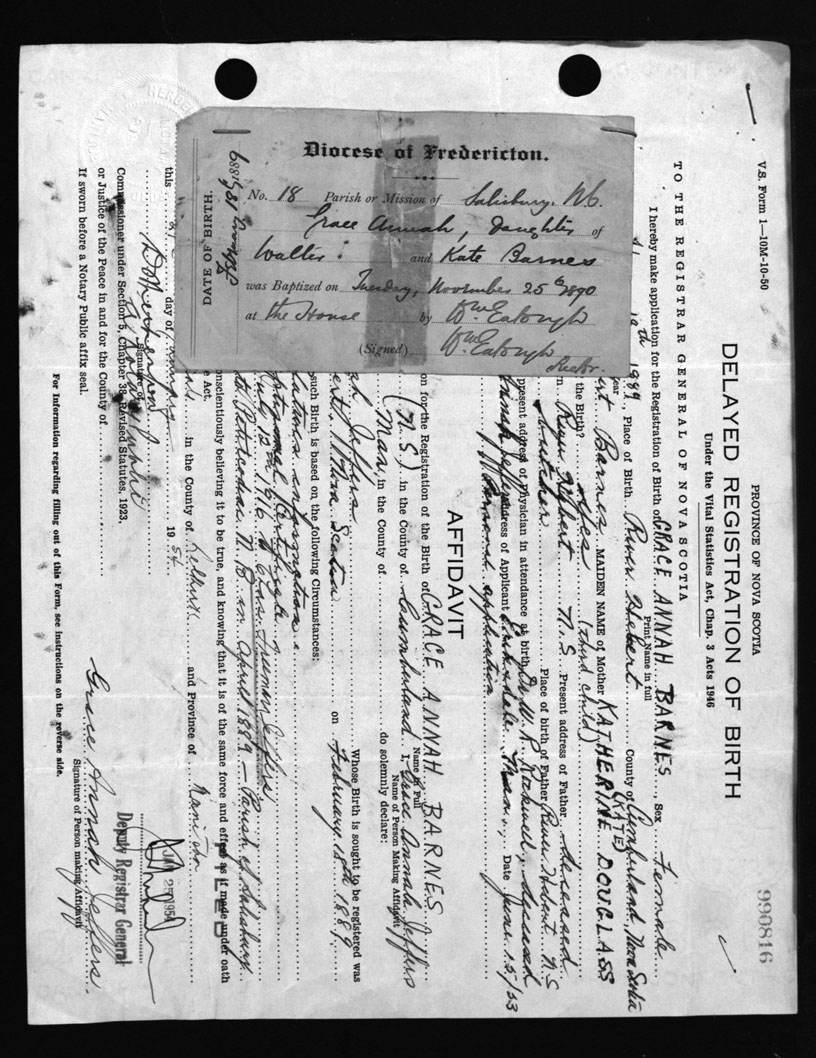 Diocese of Fredericton.
No. 18 Parish or Mission of Salisbury. N.B.
Grace Annah, Daughter of
Walter and Kate Barnes
was Baptized on Tuesday, November 25th 1890
at the House by Wm Eatough
(Signed) Wm Eatough
Rector.
DATE OF BIRTH.
V.S. Form 1—10M-10-50
PROVINCE OF NOVA SCOTIA
990816
DELAYED REGISTRATION OF BIRTH
Under the Vital Statistics Act, Chap. 3 Acts 1946
TO THE REGISTRAR GENERAL OF NOVA SCOTIA
I hereby make application for the Registration of Birth of GRACE ANNAH BARNES, Sex Female
Print Name in full
18th 1889, Place of Birth River Hebert County of Cumberland, Nova Scotia
(KATE)
Barnes MAIDEN NAME of Mother KATHERINE DOUGLASS
the Birth? (third child)
River Hebert N.S Present address of Father deceased
Place of birth of Father River Hebert N.S
present address of Physician in attendance at birth, Dr. W. Rockwell, deceased
Address of Applicant Man., Date June 15/53
Personal application
AFFIDAVIT
on for the Registration of the Birth of GRACE ANNAH BARNES
Name in Full
(N.S.) in the County of Cumberland I, Grace Annah Jeffers
Name of Person Making Affidavit
Man, in the County of do solemnly declare:
Whose Birth is sought to be registered was
Nova Scotia on February 18th 1889
such Birth is based on the following Circumstances:
information:
Baptismal Certificate
July 12 in 1916 to Jeffers
to Petitcodiac N.B in April 1889 — Parish of Salisbury
onscientiously believing it to be true, and knowing that it is of the same force and effect as if made under oath
e Act.
in the County of and Province of Manitoba
this day of 19 54
Signature of
Commissioner under Section 5, Chapter 38, Revised Statutes, 1923,
or Justice of the Peace in and for the County of
If sworn before a Notary Public affix seal.
Grace Annah Jeffers.
Signature of Person making Affidavit
Deputy Registrar General
25 1954
For Information regarding filling out of this Form, see instructions on the reverse side.